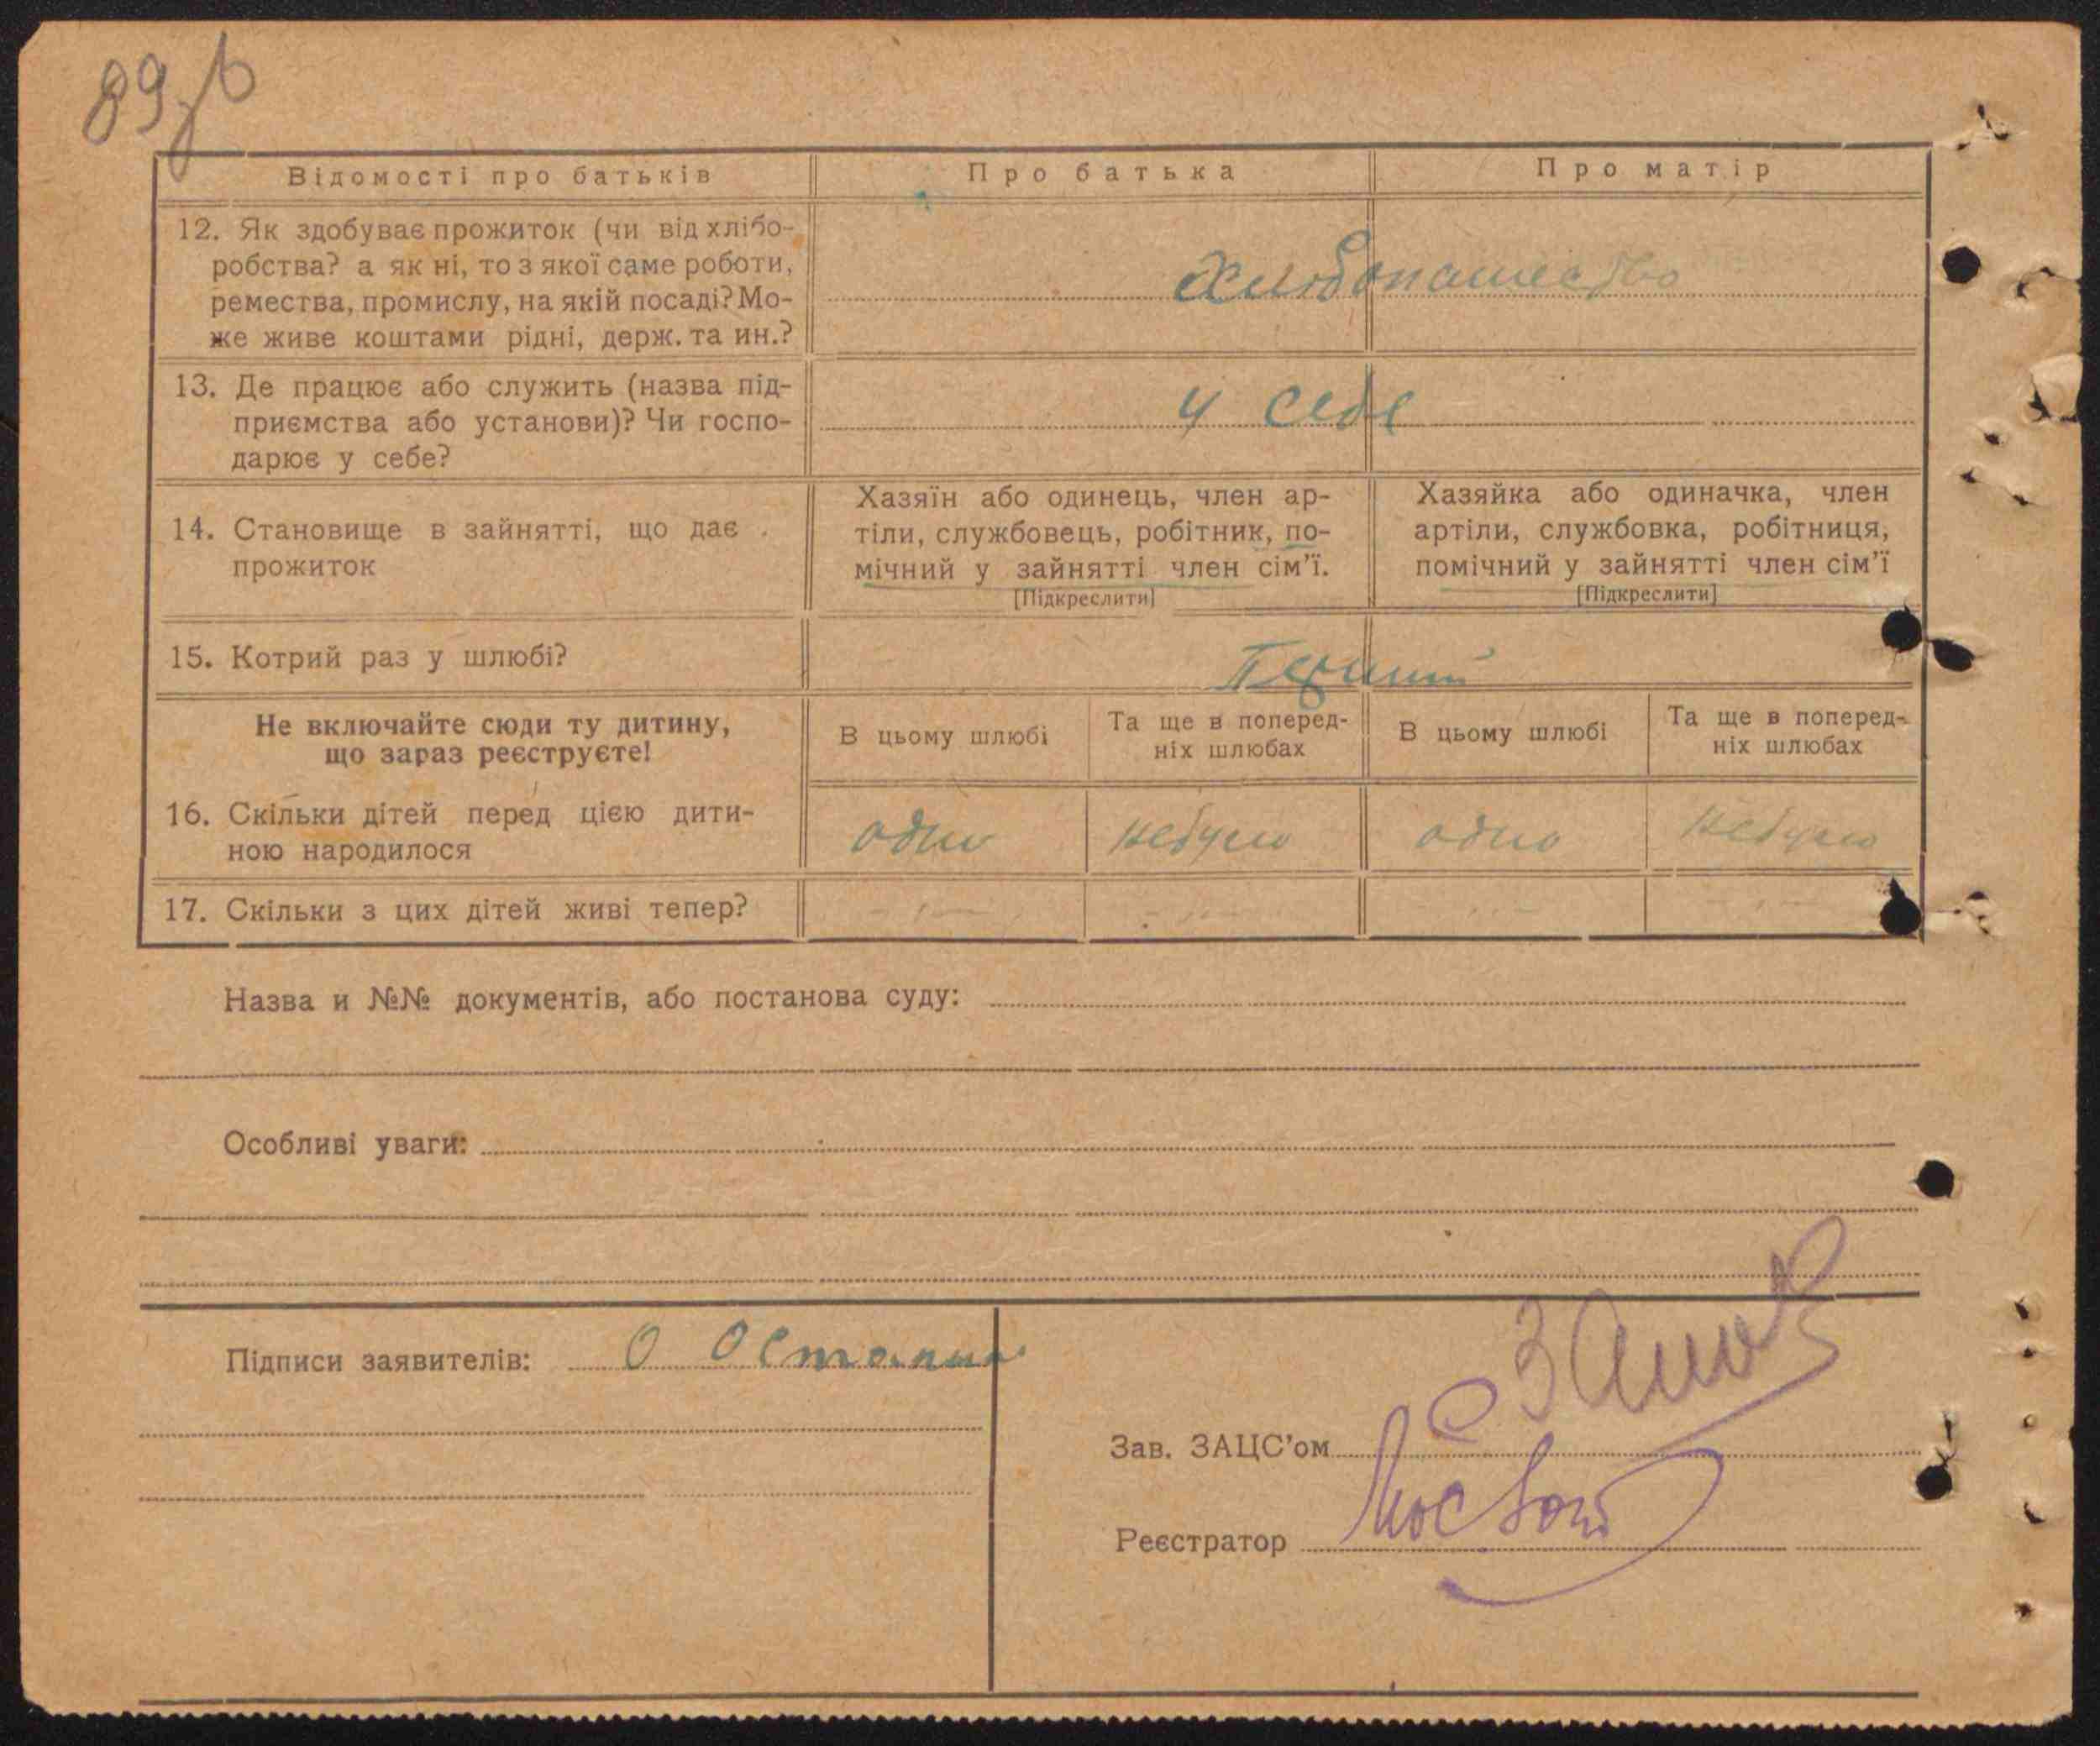 89 зв
Відомості про батьків
Про батька
Про матір
12. Як здобуває прожиток (чи від хлібо-
робства? а як ні, то з якої саме роботи,
ремества, промислу, на якій посаді? Мо-
же живе коштами рідні, держ. та ин.?
хлібопашество
13. Де працює або служить (назва під-
приємства або установи)? Чи госпо-
дарює у себе?
у себе
14. Становище в зайнятті, що дає
прожиток
Хазяїн або одинець, член ар-
тіли, службовець, робітник, по-
мічний у зайнятті член сім'ї.
[Підкреслити]
Хазяйка або одиначка, член
артіли, службовка, робітниця,
помічний у зайнятті член сім'ї
[Підкреслити]
15. Котрий раз у шлюбі?
Не включайте сюди ту дитину,
що зараз реєструєте!
В цьому шлюбі
Та ще в поперед-
ніх шлюбах
В цьому шлюбі
Та ще в поперед-
ніх шлюбах
16. Скільки дітей перед цією дити-
ною народилося
одно
небуло
одно
небуло
17. Скільки з цих дітей живі тепер?
Назва и №№ документів, або постанова суду:
Особливі уваги:
Підписи заявителів:
Зав. ЗАЦС'ом
Реєстратор